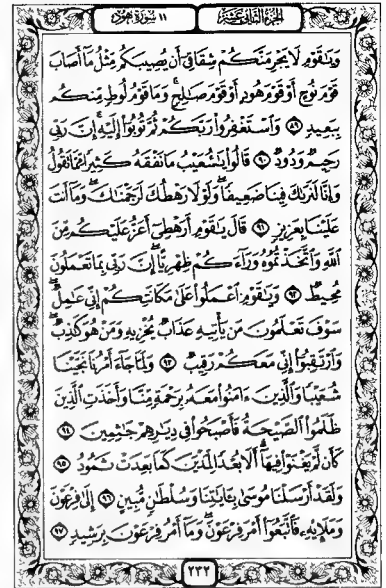 الجزء الثاني عشر
١١ سورة هود
وَيَٰقَوْمِ لَا يَجْرِمَنَّكُمْ شِقَاقِىٓ أَن يُصِيبَكُم مِّثْلُ مَآ أَصَابَ
قَوْمَ نُوحٍ أَوْ قَوْمَ هُودٍ أَوْ قَوْمَ صَٰلِحٍ ۚ وَمَا قَوْمُ لُوطٍ مِّنكُم
بِبَعِيدٍ ٨٩ وَٱسْتَغْفِرُوا۟ رَبَّكُمْ ثُمَّ تُوبُوٓا۟ إِلَيْهِ ۚ إِنَّ رَبِّى
رَحِيمٌ وَدُودٌ ٩٠ قَالُوا۟ يَٰشُعَيْبُ مَا نَفْقَهُ كَثِيرًا مِّمَّا تَقُولُ
وَإِنَّا لَنَرَىٰكَ فِينَا ضَعِيفًا ۖ وَلَوْلَا رَهْطُكَ لَرَجَمْنَٰكَ ۖ وَمَآ أَنتَ
عَلَيْنَا بِعَزِيزٍ ٩١ قَالَ يَٰقَوْمِ أَرَهْطِىٓ أَعَزُّ عَلَيْكُم مِّنَ
ٱللَّهِ وَٱتَّخَذْتُمُوهُ وَرَآءَكُمْ ظِهْرِيًّا ۖ إِنَّ رَبِّى بِمَا تَعْمَلُونَ
مُحِيطٌ ٩٢ وَيَٰقَوْمِ ٱعْمَلُوا۟ عَلَىٰ مَكَانَتِكُمْ إِنِّى عَٰمِلٌ ۖ
سَوْفَ تَعْلَمُونَ مَن يَأْتِيهِ عَذَابٌ يُخْزِيهِ وَمَنْ هُوَ كَٰذِبٌ ۖ
وَٱرْتَقِبُوٓا۟ إِنِّى مَعَكُمْ رَقِيبٌ ٩٣ وَلَمَّا جَآءَ أَمْرُنَا نَجَّيْنَا
شُعَيْبًا وَٱلَّذِينَ ءَامَنُوا۟ مَعَهُۥ بِرَحْمَةٍ مِّنَّا وَأَخَذَتِ ٱلَّذِينَ
ظَلَمُوا۟ ٱلصَّيْحَةُ فَأَصْبَحُوا۟ فِى دِيَٰرِهِمْ جَٰثِمِينَ ٩٤
كَأَن لَّمْ يَغْنَوْا۟ فِيهَآ ۗ أَلَا بُعْدًا لِّمَدْيَنَ كَمَا بَعِدَتْ ثَمُودُ ٩٥
وَلَقَدْ أَرْسَلْنَا مُوسَىٰ بِـَٔايَٰتِنَا وَسُلْطَٰنٍ مُّبِينٍ ٩٦ إِلَىٰ فِرْعَوْنَ
وَمَلَإِي۟هِۦ فَٱتَّبَعُوٓا۟ أَمْرَ فِرْعَوْنَ ۖ وَمَآ أَمْرُ فِرْعَوْنَ بِرَشِيدٍ ٩٧
٢٣٢